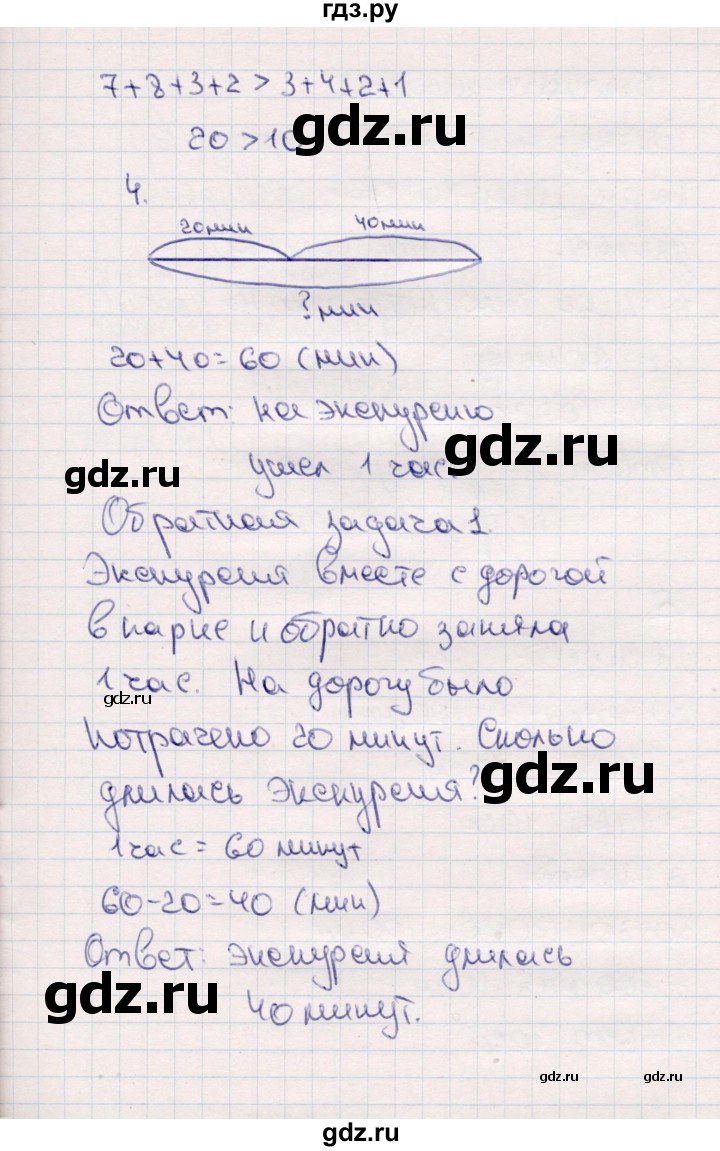 гдз.ру
7+8+3+2 > 3+4+2+1
20 > 10
gdz.ru
4.
20мин 40мин
? мин
20+40=60 (мин)
Ответ: на экскурсию
gdz.ru
ушел 1 час.
gdz.ru
Обратная задача 1.
Экскурсия вместе с дорогой
в парке и обратно заняла
1 час. На дорогу было
gdz.ru
потрачено 20 минут. Сколько
длилась экскурсия?
gdz.ru
1 час = 60 минут
60-20=40 (мин)
Ответ: экскурсия длилась
gdz.ru
40 минут.
gdz.ru gdz.ru
gdz.ru